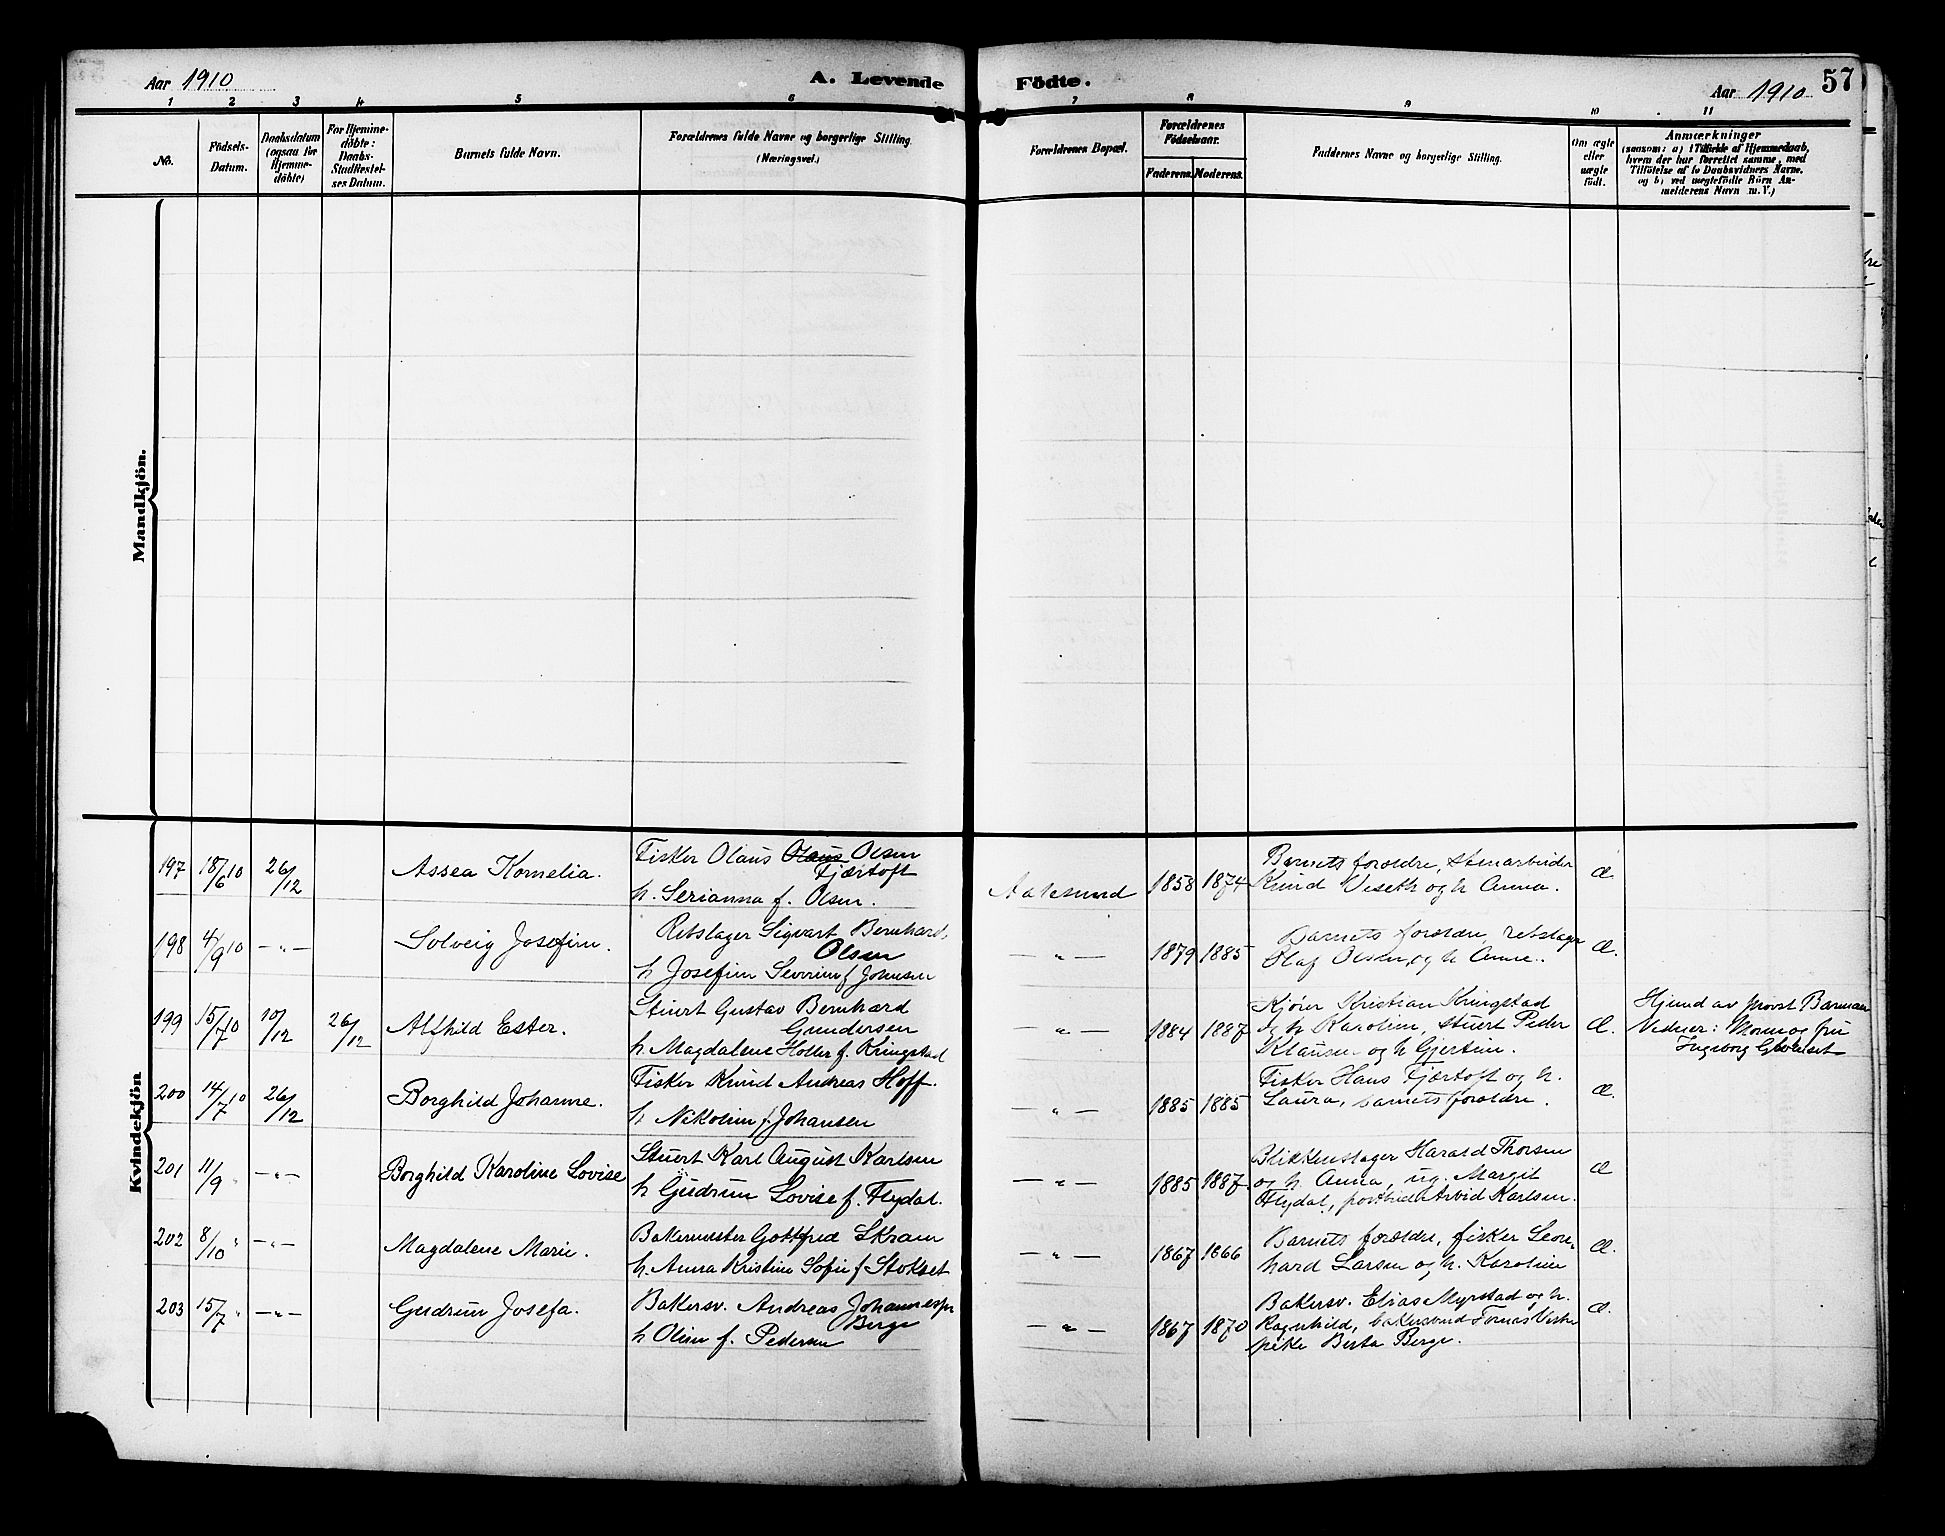 Aar 1910
A. Levende
Födte.
Aar 1910
57
1 2 3 4 5 6 7 8 9 10 11
No.
Födsels-
Datum.
Daabsdatum
(ogsaa for
Hjemme-
döbte)
For Hjemme-
döbte:
Daabs-
Stadfæstel-
ses Datum.
Barnets fulde Navn.
Forældrenes fulde Navne og borgerlige Stilling.
(Næringsvei.)
Forældrenes Bopæl.
Forældrenes
Födselsaar.
Faderens. Moderens.
Faddernes Navne og borgerlige Stilling.
Om ægte
eller
uægte
födt.
Anmærkninger
(saasom: a) i Tilfælde af Hjemmedaab,
hvem der har forrettet samme, med
Tilföielse af to Daabsvidners Navne,
og b) ved uægtefödte Börn An-
melderens Navn m. V.)
Mandkjön.
Kvindekjön
197 18/6 10 26/12 Assea Kornelia. Fisker Olaus Olaus Olsen
Fjærtoft
h. Serianna f. Olsen.
Aalesund 1858 1874 Barnets forældre, stenarbeider
Knud Viseth og h Anna. Æ
198 4/9 10 — " — Solveig Josefine. Rebslager Sigvart Bernhard
Olsen
h Josefine Severine f Johnsen
— " — 1879 1885 Barnets forældre, rebslager
Olaf Olsen og h Anne.. Æ.
199 15/7 10 10/12 26/12 Alfhild Ester. Stuert Gustav Bernhard
Gundersen
h. Magdalene Holter f. Kringstad
— " — 1884 1887 Kjører Kristian Kringstad
og h Karoline, stuert Peder
Klausen og h Gjertine. Æ.
Hjemd av provst Barman
Vidner: Moren og fru
Ingeborg
200 14/7 10 26/12 Borghild Johanne. Fisker Knud Andreas Hoff.
h Nikoline f. Johansen
— " — 1885 1885 Fisker Hans Fjærtoft og h.
Laura, barnets forældre. Æ.
201 11/9 " — " — Borghild Karoline Lovise Stuert Karl August Karlsen
h Gudrun Lovise f. Flydal.
— " — 1885 1887. Blikkenslager Harald Thorsen
og h. Anna, ug. Margit
Flydal, postbud Arvid Karlsen. Æ
202 8/10 " — " — Magdalene Marie. Bakermester Gottfred Skram
h. Anna Kristine Sofie f Stokset
— " — 1867 1866 Barnets forældre, fisker Leon-
hard Larsen og h. Karoline Æ.
203 15/7 " — " — Gudrun Josefa. Bakersv. Andreas Johannesen
Berge
h Oline f. Pedersen
— " — 1867 1870 Bakersv. Elias Myrstad og h.
Ragnhild, Tomas
pike Berta Berge. Æ.